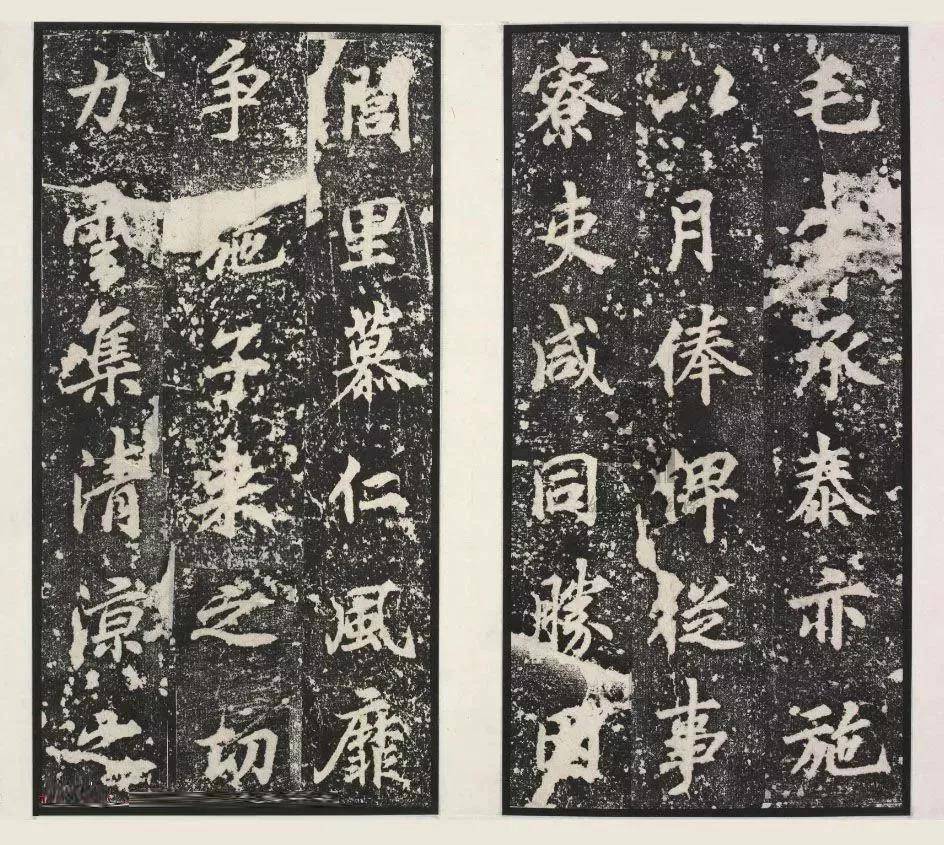 毛承泰亦施
以月俸俾從事
寮吏咸同勝因
閭里慕仁風靡
争施子来之切
力雲集清涼